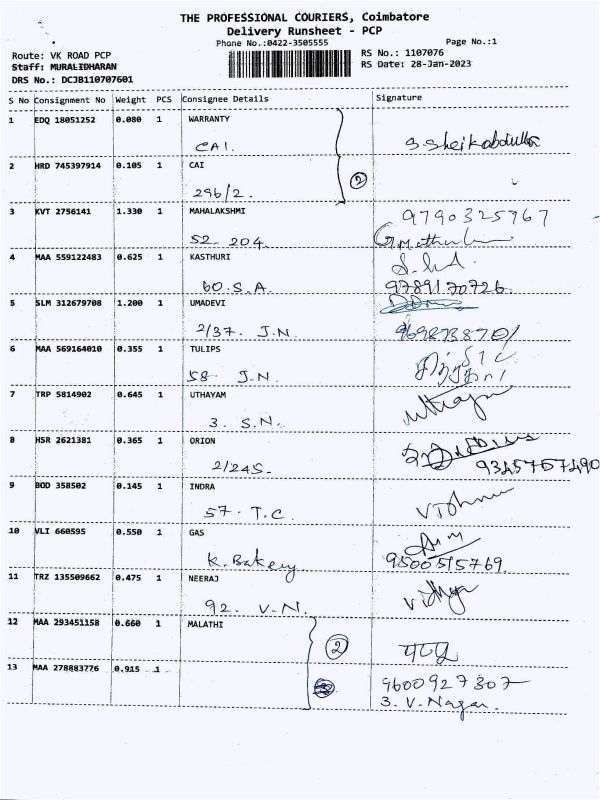 THE PROFESSIONAL COURIERS, Coimbatore
Delivery Runsheet - PCP
Phone No.:0422-3505555 Page No.:1
Route: VK ROAD PCP RS No.: 1107076
Staff: MURALIDHARAN RS Date: 28-Jan-2023
DRS No.: DCJB110707601
S No Consignment No Weight PCS Consignee Details Signature
1 EDQ 18051252 0.080 1 WARRANTY
CAI. S. Sheik abdulla
2 HRD 745397914 0.105 1 CAI
296/2. 2
3 KVT 2756141 1.330 1 MAHALAKSHMI 9790325767
52. 204.
4 MAA 559122483 0.625 1 KASTHURI
60. S.A. 9789170726.
5 SLM 312679708 1.200 1 UMADEVI
2/37. J.N. 9698738701
6 MAA 569164010 0.355 1 TULIPS
58. J.N.
7 TRP 5814902 0.645 1 UTHAYAM
3. S.N.
8 HSR 2621381 0.365 1 ORION
2/245. 9345757490
9 BOD 358502 0.145 1 INDRA
57. T.C.
10 VLI 660595 0.550 1 GAS
K. Bakery 9500515769.
11 TRZ 135509662 0.475 1 NEERAJ
92. V.N.
12 MAA 293451158 0.660 1 MALATHI
2
13 MAA 278883776 0.915 1 9600927307
3. V. Nagar.